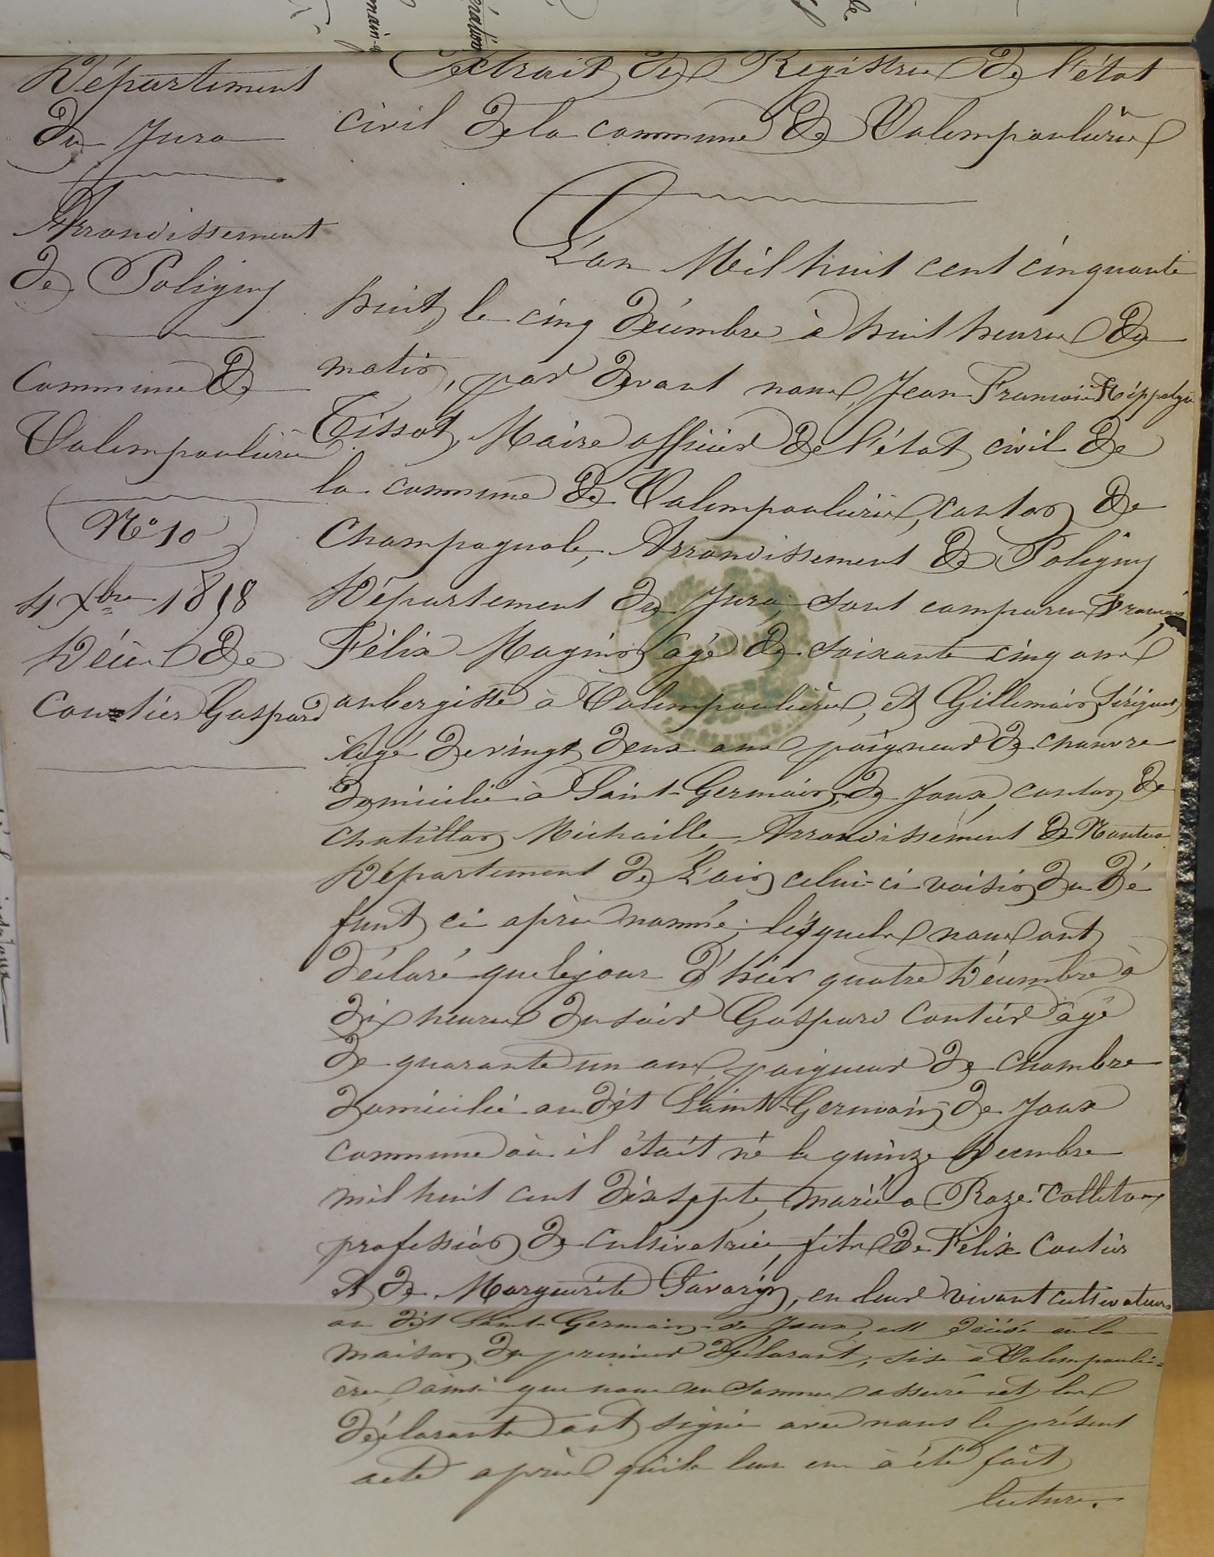 Département
du Jura
Arrondissement
de Poligny
Commune de
Valempoulière
N° 10
4 Xbre 1858
Décès de
Coutier Gaspard
Extrait des Registres de l'état
civil de la commune de Valempoulières
L'an Mil huit cent cinquante
huit, le cinq Décembre à huit heures du
matin, par devant nous, Jean François Hippolyte
Tissot, Maire officier de l'état civil de
la commune de Valempoulières, canton de
Champagnole, Arrondissement de Poligny
Département du Jura sont comparus François
Félix Magnin âgé de soixante cinq ans
aubergiste à Valempoulières, et Gillemain
âgé de vingt deux ans paigneur de chanvre
domicilié à Saint-Germain de Joux, canton de
Chatillon Michaille, Arrondissement de Nantua
Département de L'ain, celui-ci voisin du dé
funt ci après nommé; lesquels nous ont
déclaré que le jour d'hier quatre Décembre à
dix heures du soir Gaspard Coutier âgé
de quarante un ans, paigneur de chambre
domicilié au dit Saint-Germain de Joux
commune où il était né le quinze Décembre
mil huit cent dix sept, marié a Roze Colleta
profession de cultivatrice, fils de Félix Coutier
et de Marguerite Savarin, en leur vivant cultivateurs
au dit Saint-Germain de Joux, est décédé en la
maison du premier déclarant, sise à Valempouli-
ères, ainsi que nous nous en sommes assuré et les
déclarants ont signé avec nous le présent
acte après qu'il leur en à été fait
lecture.